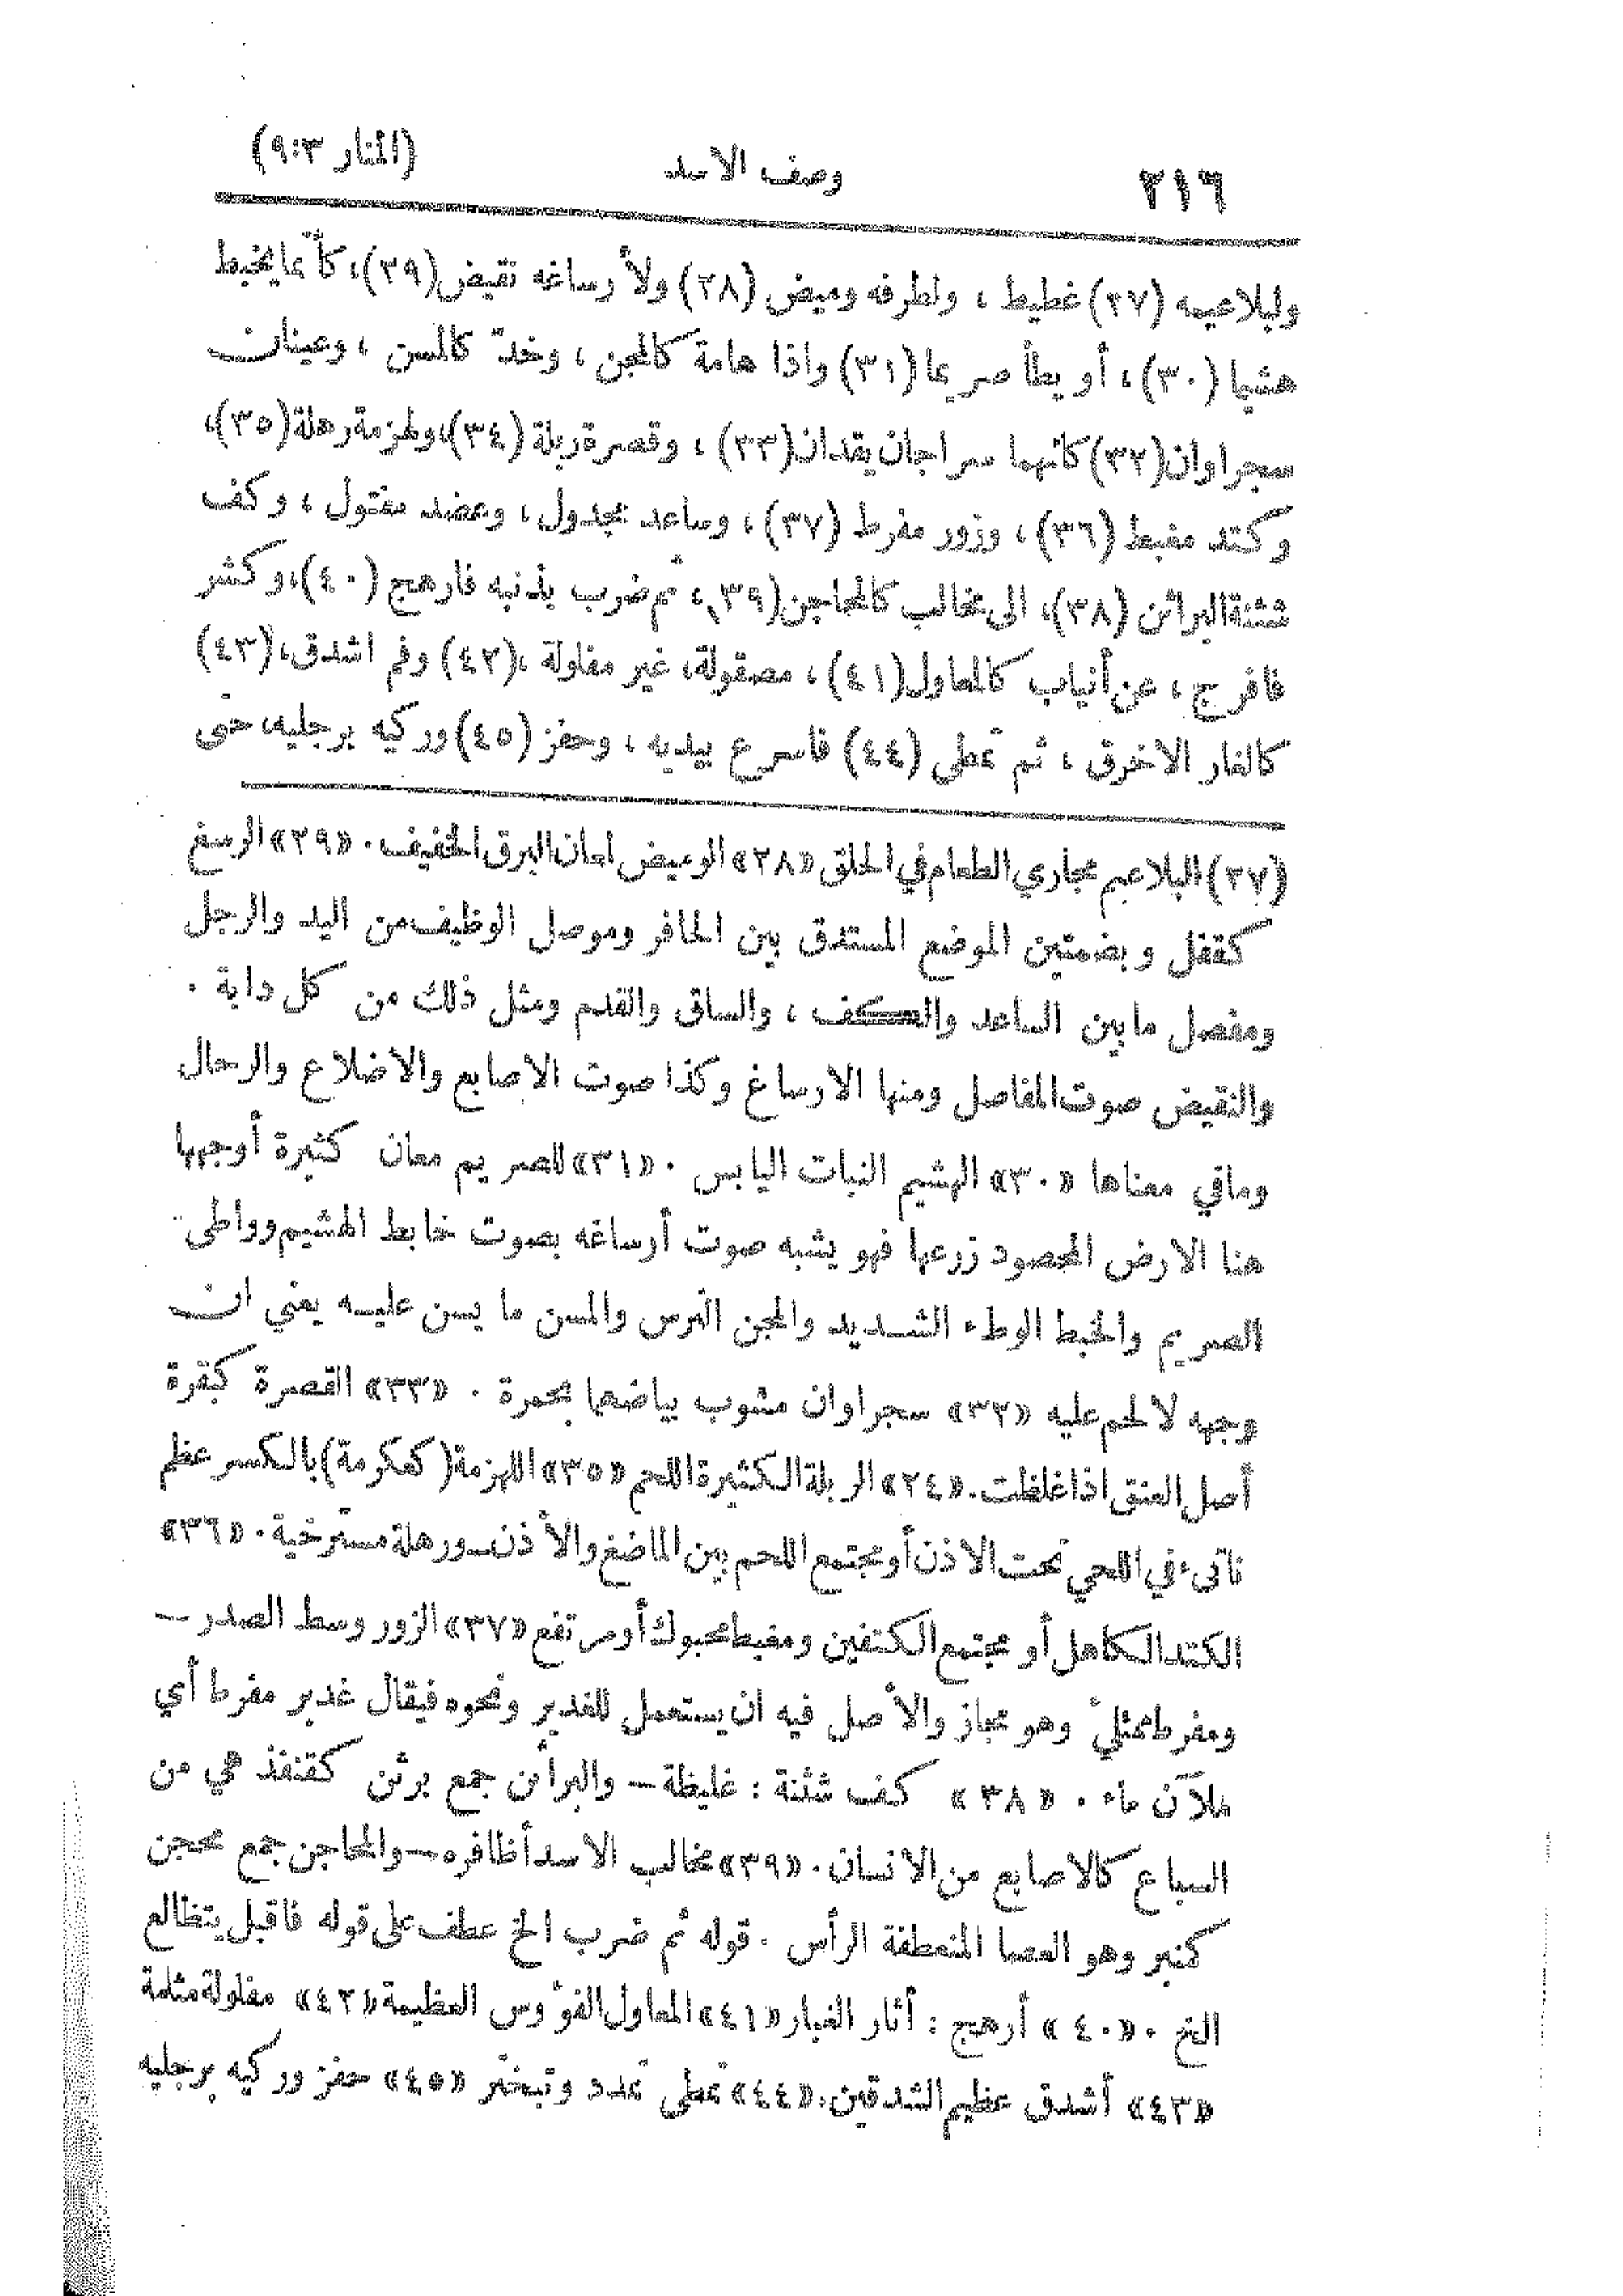 ٢١٦ وصف الاسد (المنار ٩:٣)
ولبلاعيمه (٢٧) غطيط ، ولطرفه وميض (٢٨) ولأرساغه نقيض (٢٩)، كأنما يخبط
هشيما (٣٠)، أو يطأ صريما (٣١) واذا هامة كالمجن ، وخد كالمسن ، وعينان
سجراوان (٣٢) كأنهما سراجان يقدان (٣٣) ، وقصرة ربلة (٣٤)، ولهزمة رهلة (٣٥)،
وكتد مغبط (٣٦)، وزور مفرط (٣٧)، وساعد مجدول، وعضد مفتول ، وكف
شثنة البراثن (٣٨)، الى مخالب كالمحاجن (٣٩)، ثم ضرب بذنبه فارهج (٤٠)، وكشر
فافرج ، عن أنياب كالمعاول (٤١) ، مصقولة، غير مفلولة ، (٤٢) وفم اشدق، (٤٣)
كالغار الاخرق ، ثم تمطى (٤٤) فاسرع بيديه ، وحفز (٤٥) وركيه برجليه، حتى
(٢٧) البلاعيم مجاري الطعام في الحلق «٢٨» الوميض لمعان البرق الخفيف . «٢٩» الرسغ
كقفل وبضمتين الموضع المستدق بين الحافر وموصل الوظيف من اليد والرجل
ومفصل ما بين الساعد والكف ، والساق والقدم ومثل ذلك من كل دابة .
والنقيض صوت المفاصل ومنها الارساغ وكذا صوت الاصابع والاضلاع والرحال
وما في معناها «٣٠» الهشيم النبات اليابس . «٣١» للصريم معان كثيرة أوجهها
هنا الارض المحصود زرعها فهو يشبه صوت أرساغه بصوت خابط الهشيم وواطئ
الصريم والخبط الوطء الشديد والمجن الترس والمسن ما يسن عليه يعني ان
وجهه لا لحم عليه «٣٢» سجراوان مشوب بياضهما بحمرة . «٣٣» القصرة كبقرة
أصل العنق اذا غلظت . «٣٤» الربلة الكثيرة اللحم «٣٥» اللهزمة (كعكرمة) بالكسر عظم
ناتىء في اللحي تحت الاذن أو مجتمع اللحم بين الماضغ والأذن ــ ورهلة مسترخية . «٣٦»
الكتد الكاهل أو مجتمع الكتفين ومغبط محبوك أو مرتفع «٣٧» الزور وسط الصدر —
ومفرط ممتلئ وهو مجاز والأصل فيه ان يستعمل للغدير ونحوه فيقال غدير مفرط أي
ملآن ماء . «٣٨» كف شثنة : غليظة — والبراثن جمع برثن كقنفذ هي من
السباع كالاصابع من الانسان . «٣٩» مخالب الاسد أظافره — والمحاجن جمع محجن
كمنبر وهو العصا المنعطفة الرأس . قوله ثم ضرب الخ عطف على قوله فاقبل يتظالع
الخ . «٤٠» أرهج : أثار الغبار «٤١» المعاول الفؤوس العظيمة «٤٢» مفلولة مثلمة
«٤٣» أشدق عظيم الشدقين . «٤٤» تمطى تمدد وتبختر «٤٥» حفز وركيه برجليه